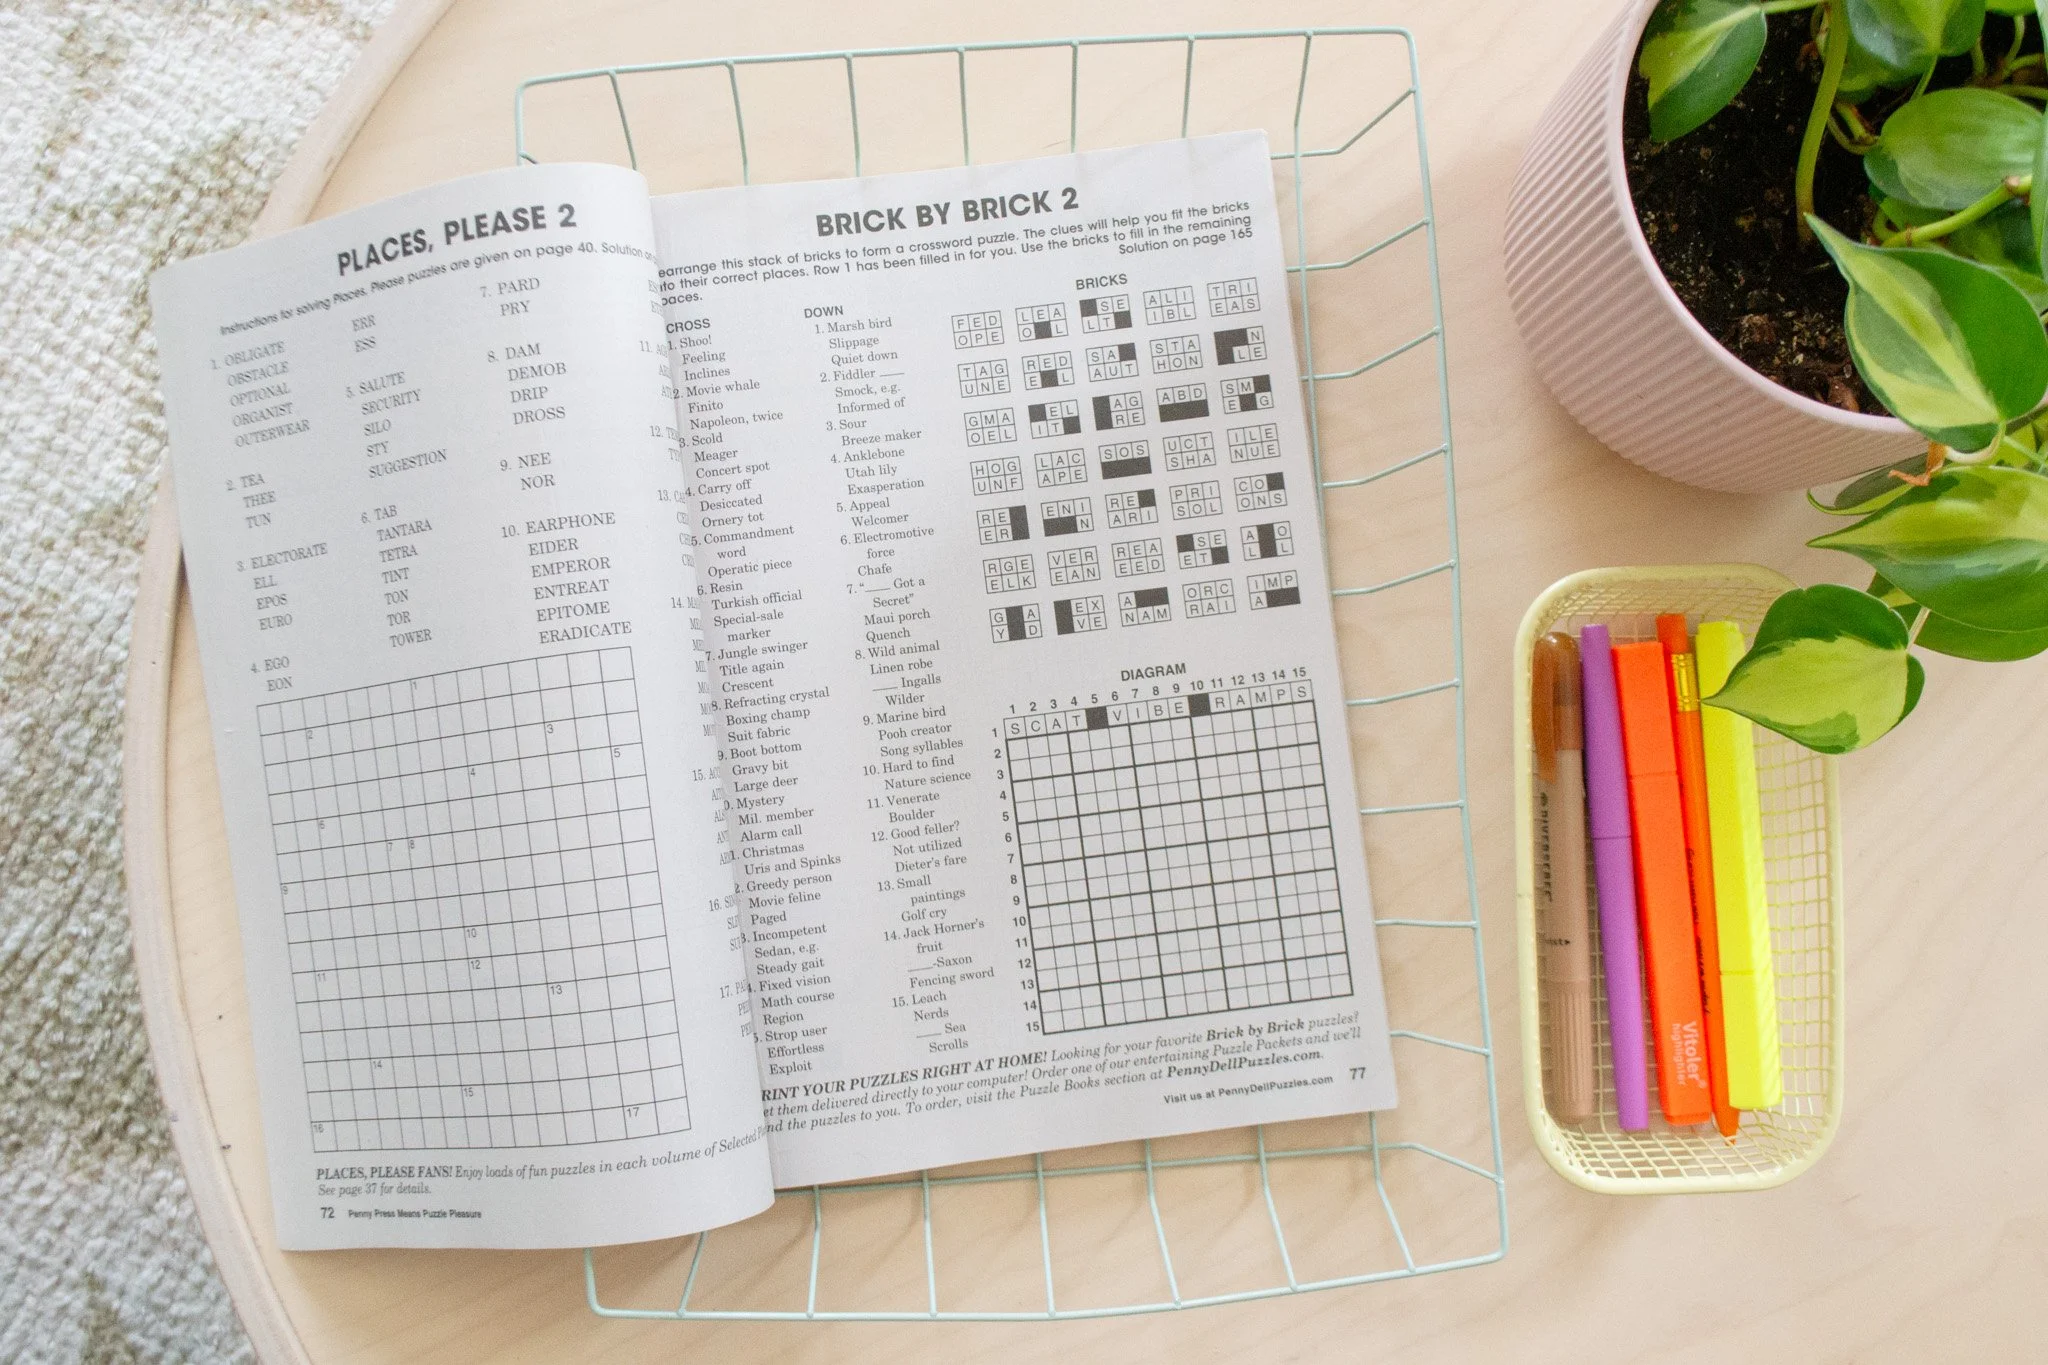 PLACES, PLEASE 2
Instructions for solving Places, Please puzzles are given on page 40. Solution on
1. OBLIGATE
OBSTACLE
OPTIONAL
ORGANIST
OUTERWEAR
2. TEA
THEE
TUN
3. ELECTORATE
ELL
EPOS
EURO
4. EGO
EON
ERR
ESS
5. SALUTE
SECURITY
SILO
STY
SUGGESTION
6. TAB
TANTARA
TETRA
TINT
TON
TOR
TOWER
7. PARD
PRY
8. DAM
DEMOB
DRIP
DROSS
9. NEE
NOR
10. EARPHONE
EIDER
EMPEROR
ENTREAT
EPITOME
ERADICATE
11.
12.
13.
14.
15.
16.
17.
1
2
3
5
4
6
7 8
9
10
11
12
13
14
15
16
17
PLACES, PLEASE FANS! Enjoy loads of fun puzzles in each volume of Selected
See page 37 for details.
72 Penny Press Means Puzzle Pleasure
BRICK BY BRICK 2
earrange this stack of bricks to form a crossword puzzle. The clues will help you fit the bricks
to their correct places. Row 1 has been filled in for you. Use the bricks to fill in the remaining
paces.
Solution on page 165
CROSS
1. Shoo!
Feeling
Inclines
2. Movie whale
Finito
Napoleon, twice
3. Scold
Meager
Concert spot
4. Carry off
Desiccated
Ornery tot
5. Commandment
word
Operatic piece
6. Resin
Turkish official
Special-sale
marker
7. Jungle swinger
Title again
Crescent
8. Refracting crystal
Boxing champ
Suit fabric
9. Boot bottom
Gravy bit
Large deer
0. Mystery
Mil. member
Alarm call
1. Christmas
Uris and Spinks
2. Greedy person
Movie feline
Paged
3. Incompetent
Sedan, e.g.
Steady gait
4. Fixed vision
Math course
Region
5. Strop user
Effortless
Exploit
DOWN
1. Marsh bird
Slippage
Quiet down
2. Fiddler ____
Smock, e.g.
Informed of
3. Sour
Breeze maker
4. Anklebone
Utah lily
Exasperation
5. Appeal
Welcomer
6. Electromotive
force
Chafe
7. "____ Got a
Secret"
Maui porch
Quench
8. Wild animal
Linen robe
____ Ingalls
Wilder
9. Marine bird
Pooh creator
Song syllables
10. Hard to find
Nature science
11. Venerate
Boulder
12. Good feller?
Not utilized
Dieter's fare
13. Small
paintings
Golf cry
14. Jack Horner's
fruit
____-Saxon
Fencing sword
15. Leach
Nerds
____ Sea
Scrolls
BRICKS
FED LEA SE ALI TRI
OPE O L LT IBL EAS
TAG RED SA STA N
UNE E L AUT HON LE
GMA EL AG ABD SM
OEL IT RE E G
HOG LAC SOS UCT ILE
UNF APE SHA NUE
RE ENI RE PRI CO
ER N ARI SOL ONS
RGE VER REA SE A O
ELK EAN EED ET L L
G A EX A ORC IMP
Y D VE NAM RAI A
DIAGRAM
1 2 3 4 5 6 7 8 9 10 11 12 13 14 15
1 SCAT VIBE RAMPS
2
3
4
5
6
7
8
9
10
11
12
13
14
15
RINT YOUR PUZZLES RIGHT AT HOME! Looking for your favorite Brick by Brick puzzles?
et them delivered directly to your computer! Order one of our entertaining Puzzle Packets and we'll
nd the puzzles to you. To order, visit the Puzzle Books section at PennyDellPuzzles.com.
Visit us at PennyDellPuzzles.com 77
Vitoler
highlighter